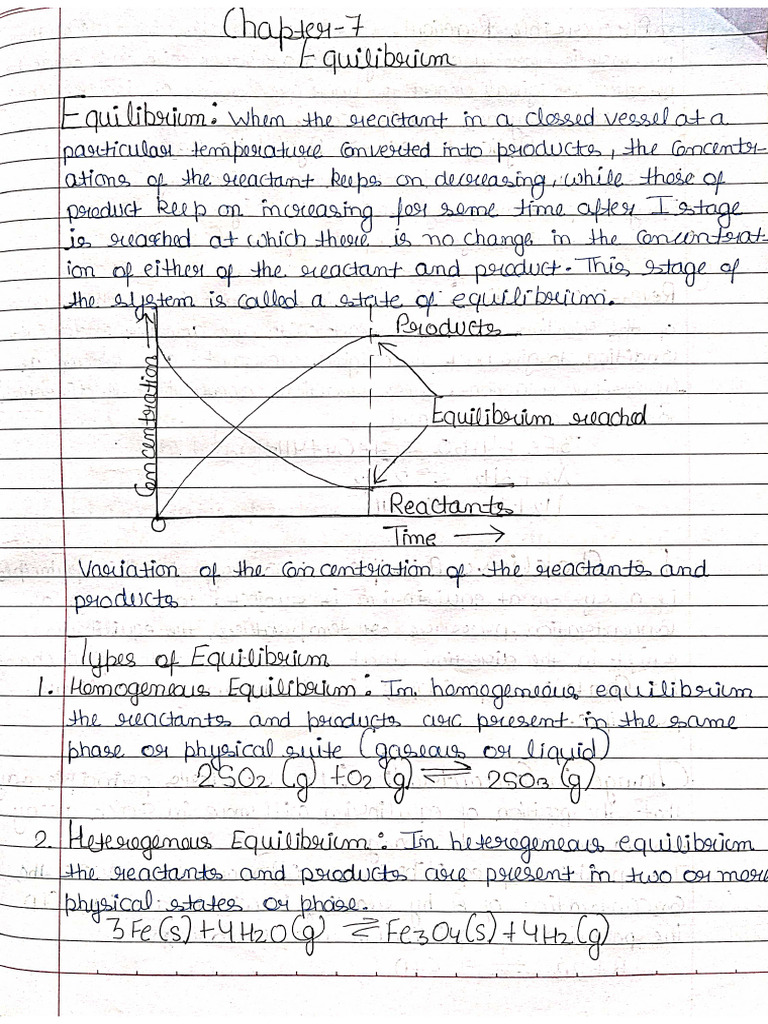 Chapter-7
Equilibrium
Equilibrium: When the reactant in a clossed vessel at a
particular temperature converted into products, the concentr-
ations of the reactant keeps on decreasing, while those of
product keep on increasing for some time after I stage
is reached at which there is no change in the concentrat-
ion of either of the reactant and product. This stage of
the system is called a state of equilibrium.
Products
Concentration →
Equilibrium reached
Reactants
O
Time →
Variation of the concentration of the reactants and
products
Types of Equilibrium
1. Homogeneous Equilibrium: In homogeneous equilibrium
the reactants and products are present in the same
phase or physical suite (gaseous or liquid)
2SO2 (g) + O2 (g) ⇌ 2SO3 (g)
2. Heterogenous Equilibrium: In heterogeneous equilibrium
the reactants and products are present in two or more
physical states or phase.
3Fe(s) + 4H2O(g) ⇌ Fe3O4(s) + 4H2(g)